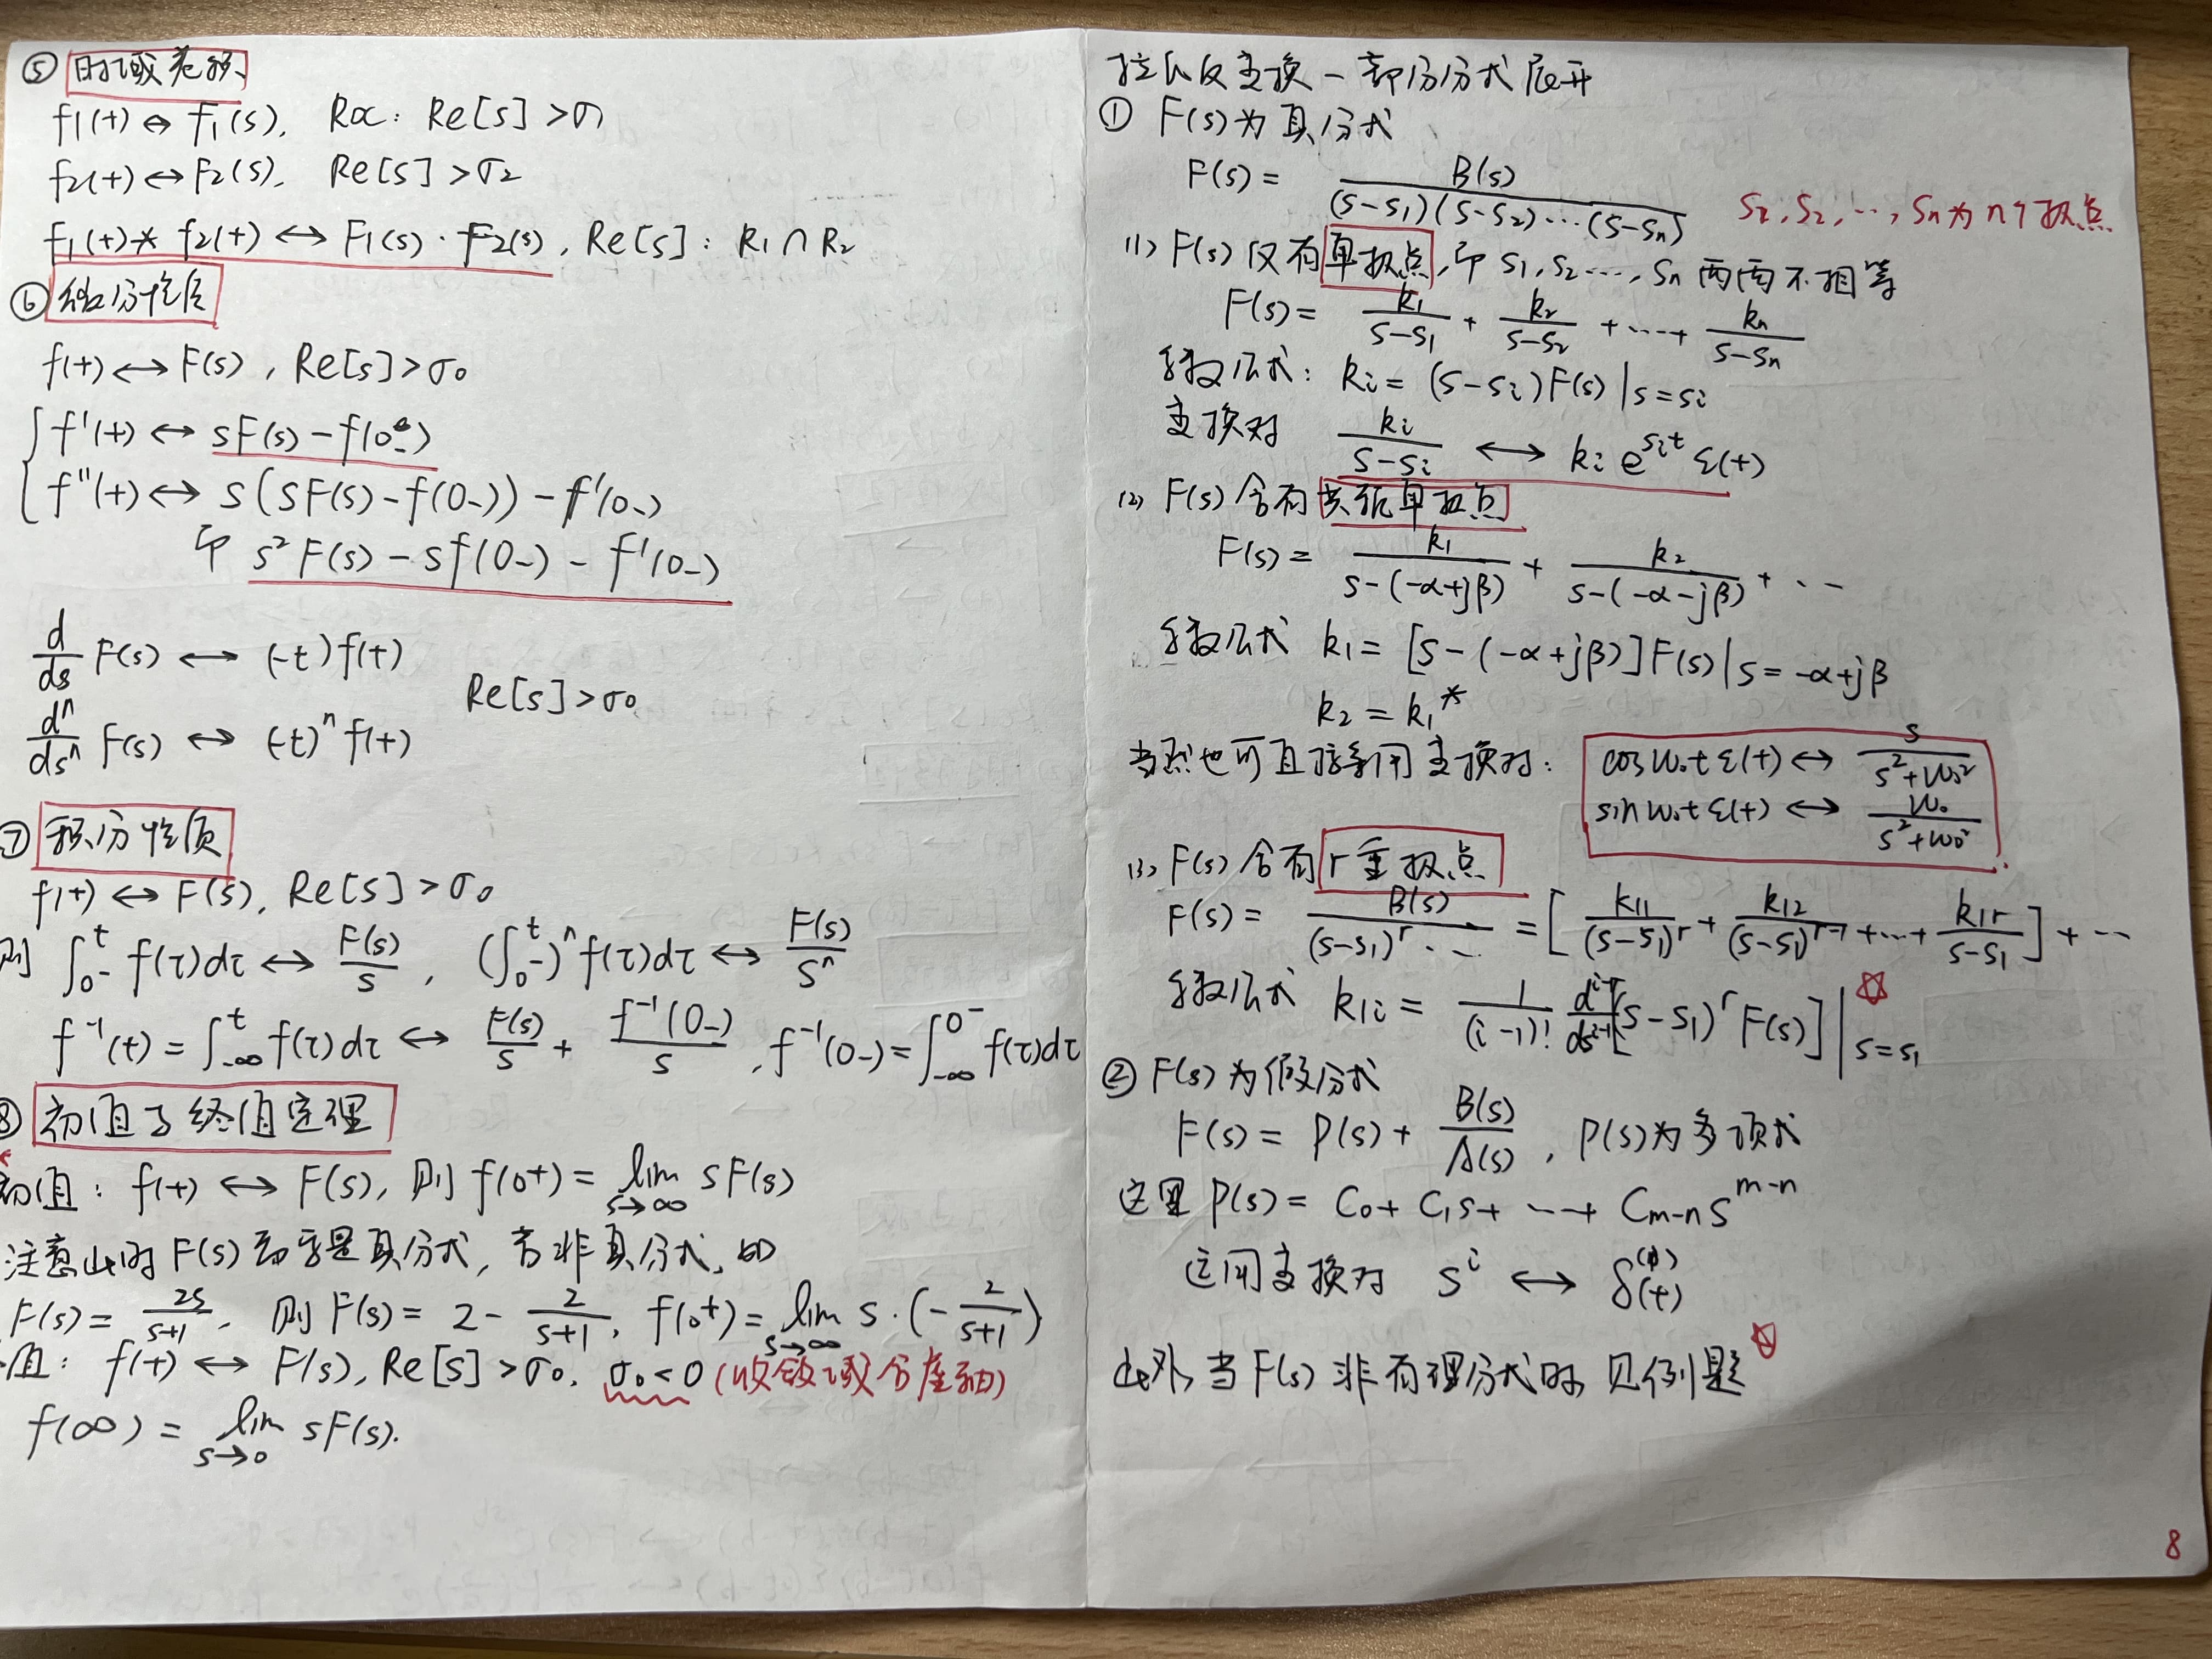 ⑤ 时域卷积
f₁(t) ↔ F₁(s), Roc: Re[s] > σ₁
f₂(t) ↔ F₂(s), Re[s] > σ₂
f₁(t) * f₂(t) ↔ F₁(s) · F₂(s), Re[s]: R₁ ∩ R₂
⑥ 微分性质
f(t) ↔ F(s), Re[s] > σ₀
f'(t) ↔ sF(s) - f(0₋)
f''(t) ↔ s(sF(s) - f(0₋)) - f'(0₋)
即 s²F(s) - sf(0₋) - f'(0₋)
d/ds F(s) ↔ (-t)f(t)
Re[s] > σ₀
dⁿ/dsⁿ F(s) ↔ (-t)ⁿ f(t)
⑦ 积分性质
f(t) ↔ F(s), Re[s] > σ₀
则 ∫₀₋ᵗ f(τ)dτ ↔ F(s)/s, (∫₀₋ᵗ)ⁿ f(τ)dτ ↔ F(s)/sⁿ
f⁻¹(t) = ∫₋∞ᵗ f(τ)dτ ↔ F(s)/s + f⁻¹(0₋)/s, f⁻¹(0₋) = ∫₋∞⁰⁻ f(τ)dτ
⑧ 初值与终值定理
初值: f(t) ↔ F(s), 则 f(0⁺) = lim s→∞ sF(s)
注意此时F(s)需要是真分式, 若非真分式, 如
F(s) = 2s/(s+1), 则 F(s) = 2 - 2/(s+1), f(0⁺) = lim s→∞ s·(-2/(s+1))
值: f(t) ↔ F(s), Re[s] > σ₀, σ₀<0 (收敛域含虚轴)
f(∞) = lim s→0 sF(s).
拉氏反变换 - 部分分式展开
① F(s)为真分式
F(s) = B(s)/((s-s₁)(s-s₂)⋯(s-sₙ)) s₁, s₂, ⋯, sₙ为n个极点
(1) F(s)仅有单极点, 即 s₁, s₂ ⋯, sₙ 两两不相等
F(s) = k₁/(s-s₁) + k₂/(s-s₂) + ⋯ + kₙ/(s-sₙ)
系数公式: kᵢ = (s-sᵢ)F(s)|s=sᵢ
变换对 kᵢ/(s-sᵢ) ↔ kᵢ e^(sᵢt) ε(t)
(2) F(s)含有共轭单极点
F(s) = k₁/(s-(-α+jβ)) + k₂/(s-(-α-jβ)) + ⋯
系数公式 k₁ = [s-(-α+jβ)]F(s)|s=-α+jβ
k₂ = k₁*
当然也可直接利用变换对: cosω₀t ε(t) ↔ s/(s²+ω₀²)
sinω₀t ε(t) ↔ ω₀/(s²+ω₀²)
(3) F(s)含有r重极点
F(s) = B(s)/((s-s₁)ʳ ⋯) = [k₁₁/(s-s₁)ʳ + k₁₂/(s-s₁)ʳ⁻¹ + ⋯ + k₁ᵣ/(s-s₁)] + ⋯
系数公式 k₁ᵢ = 1/(i-1)! dⁱ⁻¹/dsⁱ⁻¹ [(s-s₁)ʳ F(s)]|s=s₁ ☆
② F(s)为假分式
F(s) = P(s) + B(s)/A(s), P(s)为多项式
这里 P(s) = C₀ + C₁s + ⋯ + Cₘ₋ₙ sᵐ⁻ⁿ
运用变换对 sⁱ ↔ δ⁽ⁱ⁾(t)
此外, 当F(s)非有理分式时, 见例题 ☆
8